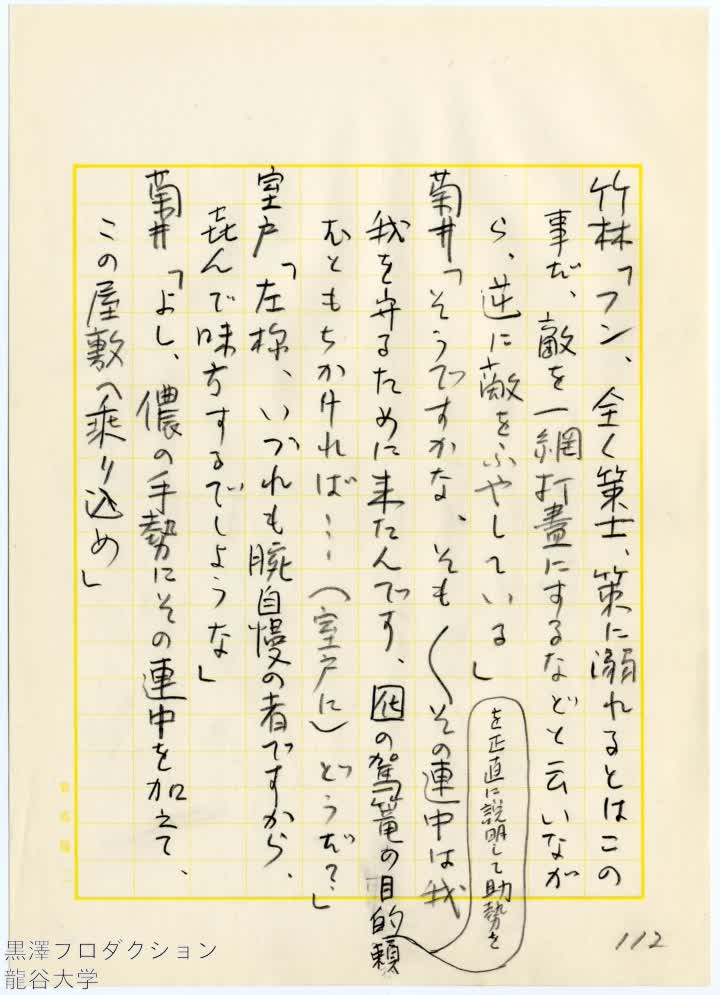 竹林「フン、全く策士、策に溺れるとはこの
事だ、敵を一網打盡にするなどと云いなが
ら、逆に敵をふやしている」
菊井「そうですかな、そも〱その連中は我
我を守るために来たんです、囮の駕篭の目的
を正直に説明して助勢を
頼
むともちかければ…(室戸に)どうだ?」
室戸「左様、いづれも腕自慢の者ですから、
㐂んで味方するでしような」
菊井「よし、儂の手勢にその連中を加えて、
この屋敷へ乗り込め」
112
黒澤プロダクション
龍谷大学